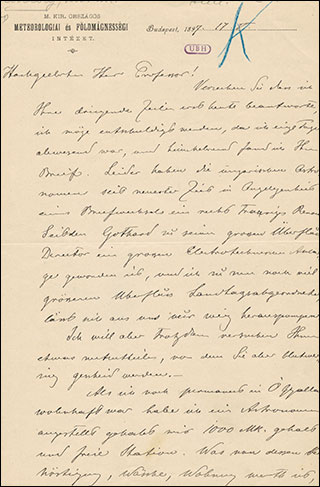 M. KIR. ORSZÁGOS
METEOROLOGIAI és FÖLDMÁGNESSÉGI
INTÉZET.
Budapest, 1897. 17
UBH
Hochgeehrter Herr Professor!
Verzeihen Sie das ich
Ihre dringende Zeilen erst heute beantworte
ich möge entschuldigt werden, da ich einige Tage
abwesend war, und heimkehrend fand ich Ihren
Brief. Leider haben die ungarischen Astro
nomen seit neuester Zeit in Angelegenheit
eines Briefwechsels ein recht
Seitdem Gothard zu seinem grossen Überfluss
Director ein grossen Electrotechnischen Anla
ge geworden ist, und ich zu nun noch viel
grösserem Überfluss Landtagsabgeordneter
lässt sich aus uns nur wenig herauspumpen
Ich will aber Trotzdem versuchen Ihnen
etwas mitzutheilen, von dem Sie aber
genheid werden.
Als ich noch permanent in Ógyalla
wohnhaft war habe ich ein Astronomen
angestellt gehabt mit 1000 Mk. gehalt
und freie Station. Was nun dessen Be
köstigung, Wäsche, Wohnung